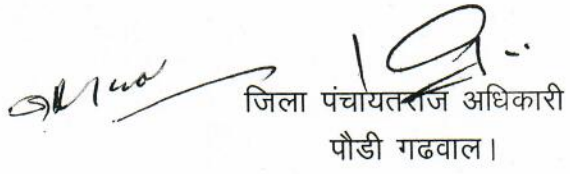 जिला पंचायतराज अधिकारी
पौडी गढवाल।